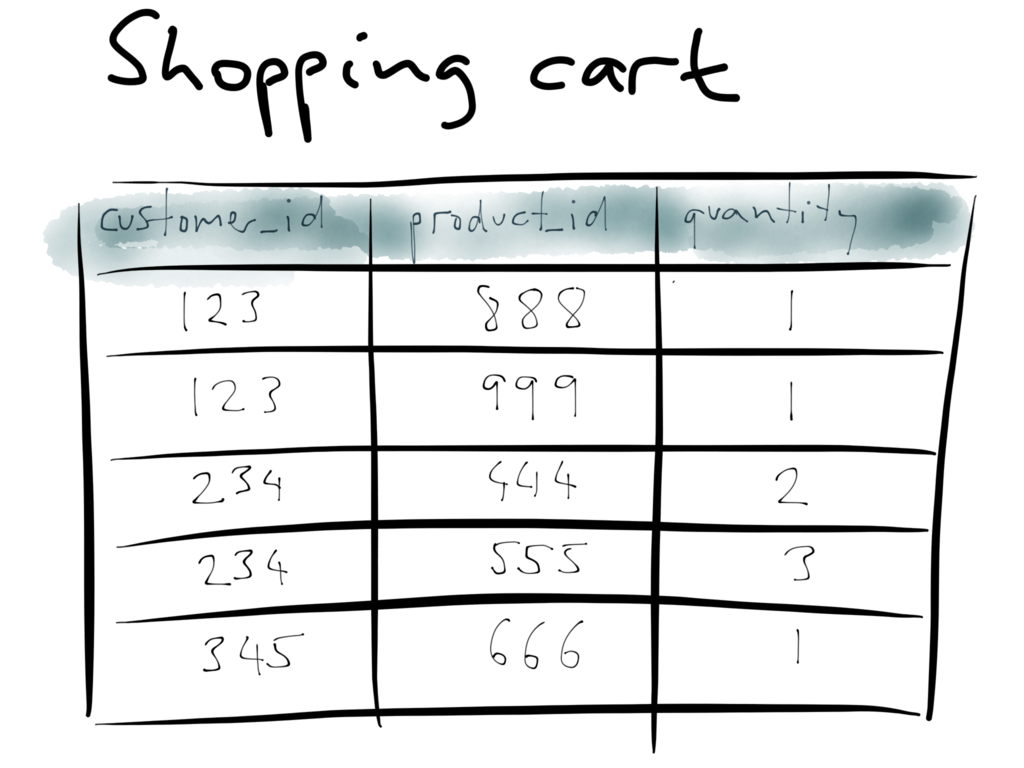 Shopping cart
customer_id product_id quantity
123 888 1
123 999 1
234 444 2
234 555 3
345 666 1